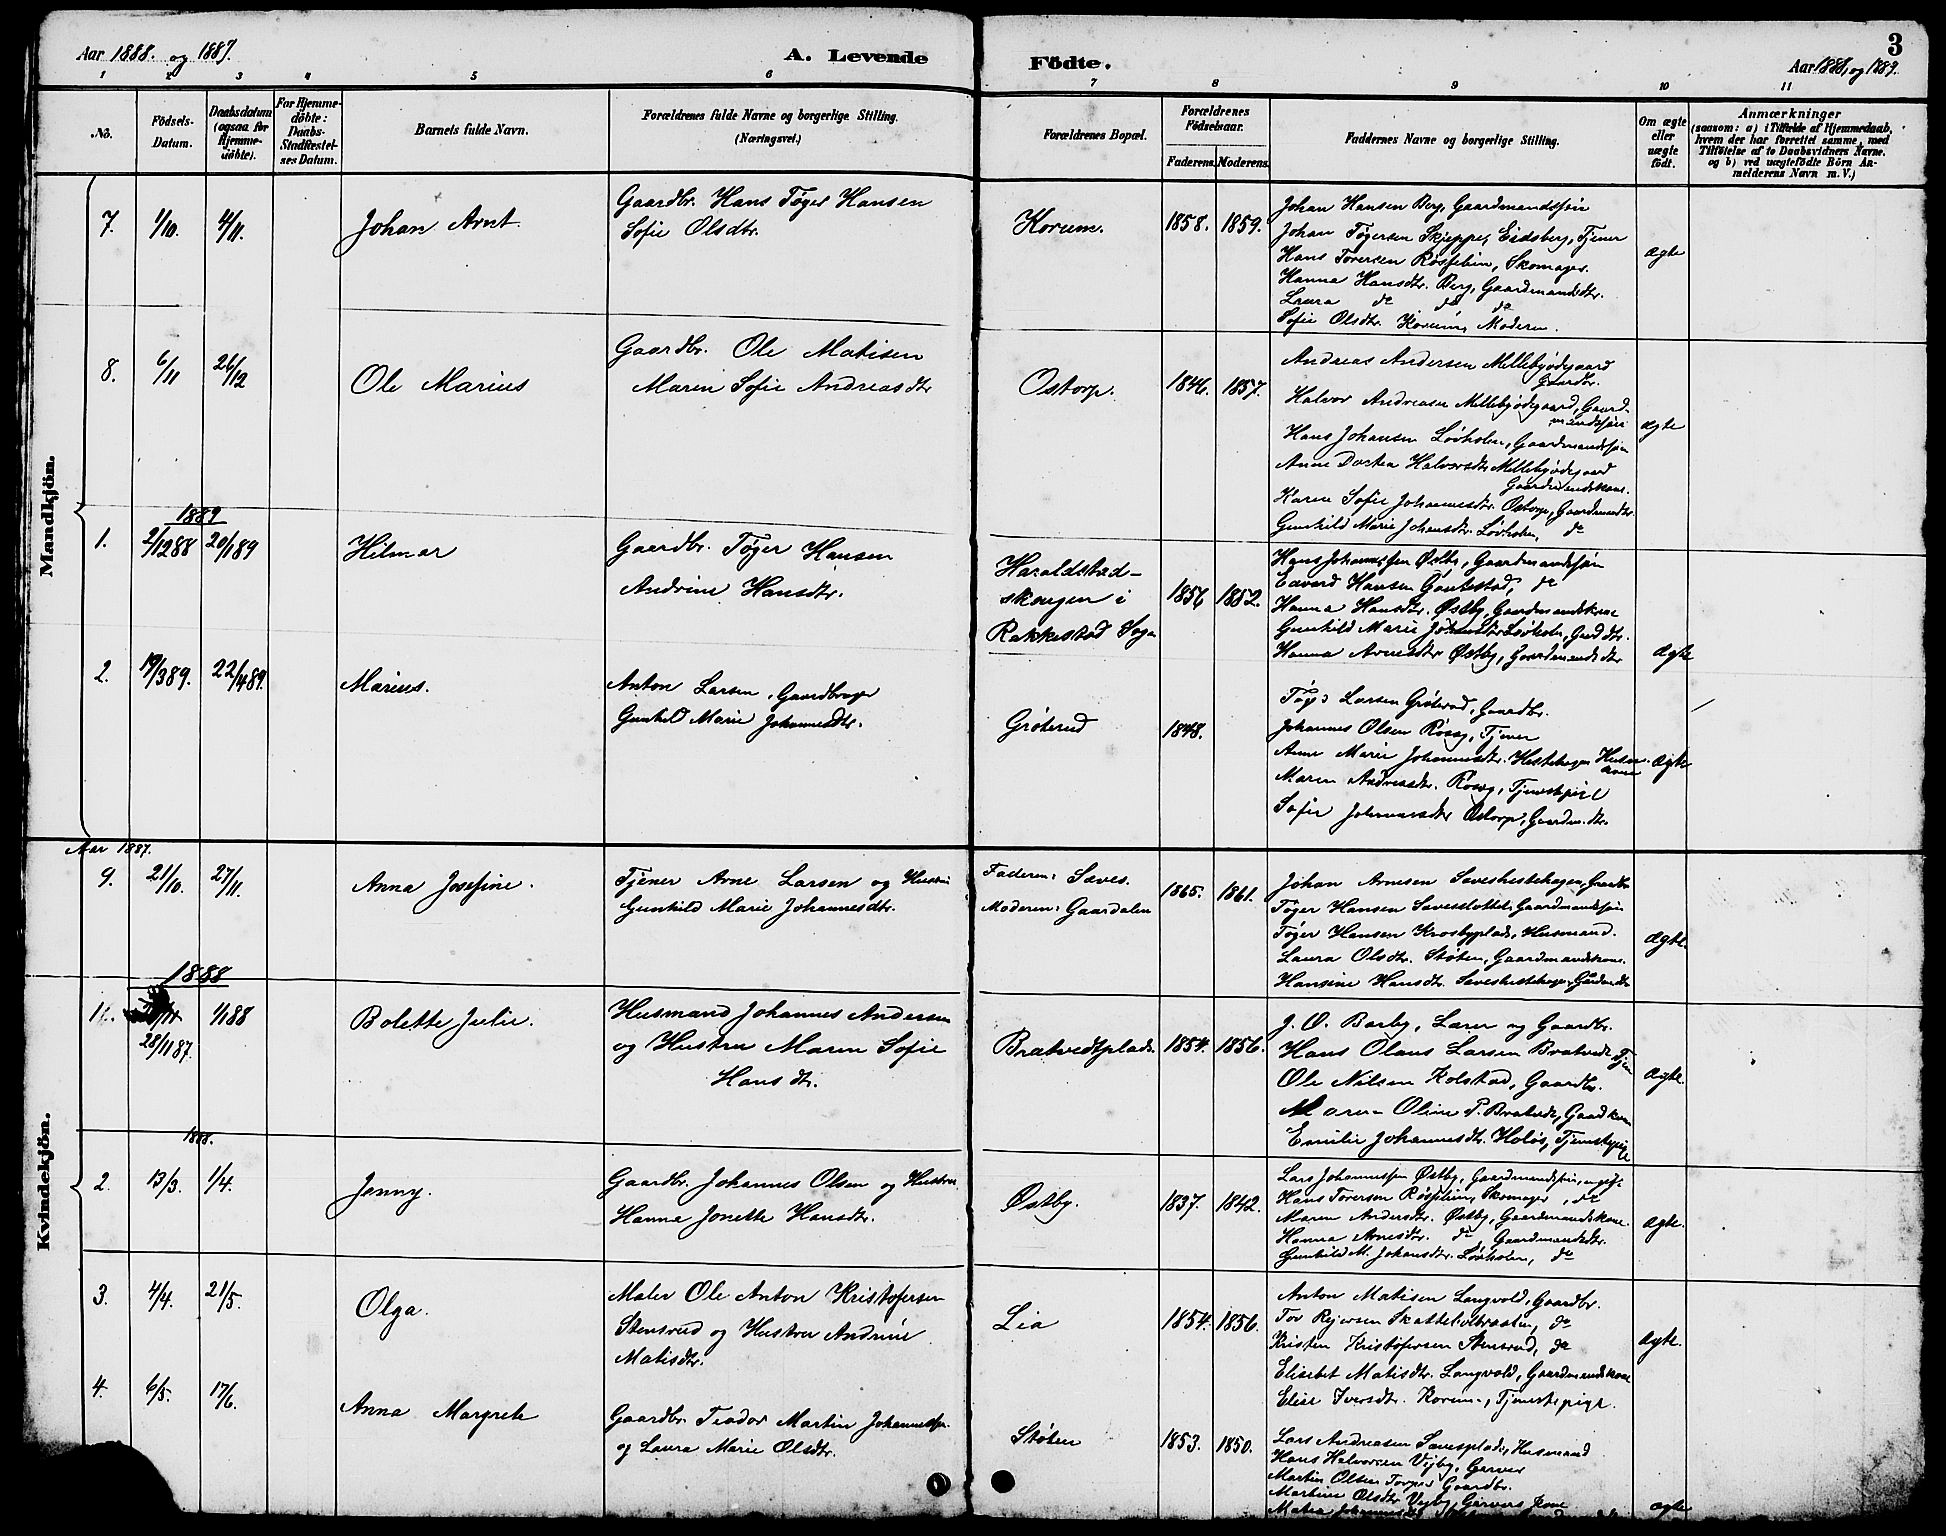 Aar 1888. og 1887.
A. Levende Födte.
3
Aar 1888, og 1889.
1 2 3 4 5 6 7 8 9 10 11
No.
Födsels-
Datum.
Daabsdatum
(ogsaa for
Hjemme-
döbte).
For Hjemme-
döbte:
Daabs-
Stadfæstel-
ses Datum.
Barnets fulde Navn.
Forældrenes fulde Navne og borgerlige Stilling.
(Næringsvei.)
Forældrenes Bopæl.
Forældrenes
Födselsaar.
Faderens. Moderens.
Faddernes Navne og borgerlige Stilling.
Om ægte
eller
uægte
födt.
Anmærkninger
(saasom: a) i Tilfælde af Hjemmedaab,
hvem der har forrettet samme, med
Tilföielse af to Daabsvidners Navne,
og b) ved uægtefödte Börn An-
melderens Navn m. V.)
Mandkjön.
7. 1/10. 4/11. Johan Arnt.
Gaardbr. Hans Tøger Hansen
Sofie Olsdtr.
Korum. 1858. 1859.
Johan Hansen Berg, Gaardmandssøn
Johan Tøgersen Skjeppe, Eidsberg, Tjener
Hans Torersen Røsselum, Skomager.
Hanna Hansdtr. Berg, Gaardmandsdtr.
Laura do do do
Sofie Olsdtr. Korum, Moderen.
ægte
8. 6/11 26/12 Ole Marius
Gaardbr. Ole Matisen
Maren Sofie Andreasdtr
Ostorp. 1846. 1857.
Andreas Andersen Millebyødegaard
Gaardbr.
Halvor Andreasen Millebyødegaard, Gaard-
mandssøn
Hans Johansen Løvholen, Gaardmandssøn
Anne Dortea Halvorsdtr Millebyødegaard
Gaardmandskone.
Karen Sofie Johannesdtr. Ostorp, Gaardmandsdtr.
Gunhild Marie Johansdtr. Løvholen, do
ægte
1889
1. 2/1288 20/189 Hilmar
Gaardbr. Tøger Hansen
Andrine Hansdtr.
Haraldstad-
skougen i
Rakkestad Sogn
1856 1852.
Hans Johannessen Østby, Gaardmandssøn
Edvard Hansen Gautestad, do
Hanna Hansdtr. Østby, Gaardmandskone
Gunhild Marie Johansdtr Løvholen, Gmd dtr.
Hanna Arnesdtr Østby, Gaardmands dtr
ægte
2. 19/389. 22/489. Marius.
Anton Larsen, Gaardbruger
Gunhild Marie Johannesdtr.
Gröterud 1848.
Larsen Gröterud, Gaardbr.
Johannes Olsen Röseg, Tjener
Anne Marie Johannesdtr. Hestehagen
Maren Andreasdtr. Röseg, Tjenestepige
Sofie Johannesdtr Ostorp, Gaardm. dtr.
ægte
Kvindekjön.
Aar 1887.
9. 21/10. 27/11. Anna Josefine.
Tjener Arne Larsen og Hustru
Gunhild Marie Johannesdtr.
Faderen: Saves.
Moderen: Gaardalen
1865. 1861.
Johan Arnesen Saveshestehagen, Gaardbr
Tøger Hansen Savesslottet, Gaardmandssøn
Tøger Hansen Krosbyplads, Husmand.
Laura Olsdtr. Støten, Gaardmandskone.
Hansine Hansdtr. Saveshestehagen,
ægte.
1888
1. 28/1187. 1/188 Bolette Julie.
Husmand Johannes Andersen
og Hustru Maren Sofie
Hansdtr.
Bratvedtplads. 1854. 1856.
J. O. Barby, Lærer og Gaardbr.
Hans Olaus Larsen Bratvedt, Tjen
Ole Nilsen Kolstad, Gaardbr.
Maren Oline P. Bratvedt, Gaardkone
Emilie Johannesdtr. Holøs, Tjenestepige
ægte.
1888.
2. 13/3. 1/4. Jenny.
Gaardbr. Johannes Olsen og Hustru
Hanna Jonette Hansdtr.
Østby. 1837. 1842.
Lars Johannessen Østby, Gaardmandssøn, ugift
Hans Torersen Røsselum, Skomager, do
Maren Andersdtr. Østby, Gaardmandskone
Hanna Arnesdtr. do Gaardmandsdtr.
Gunhild M. Johansdtr. Løvholen, do
ægte.
3. 4/4. 21/5. Olga.
Maler Ole Anton Kristofersen
Stensrud og Hustru Andrine
Matisdtr.
Lia 1854. 1856.
Anton Matisen Langvold, Gaardbr.
Tor Reiersen Skattelidbraaten, do
Kristen Kristofersen Stensrud, do
Elisabet Matisdtr. Langvold, Gaardmandskone
Elise Iversdtr. Korum, Tjenestepige.
ægte.
4. 6/5. 17/6. Anna Margrete
Gaardbr. Teodor Martin Johannessen
og Laura Marie Olsdtr.
Støten 1853. 1850.
Lars Andreasen Savesplads, Husmand
Hans Halvorsen Vejby, Garver
Martin Olsen Torper, Gaardbr.
Martine Olsdtr. Vejby, Garvers Kone
ægte